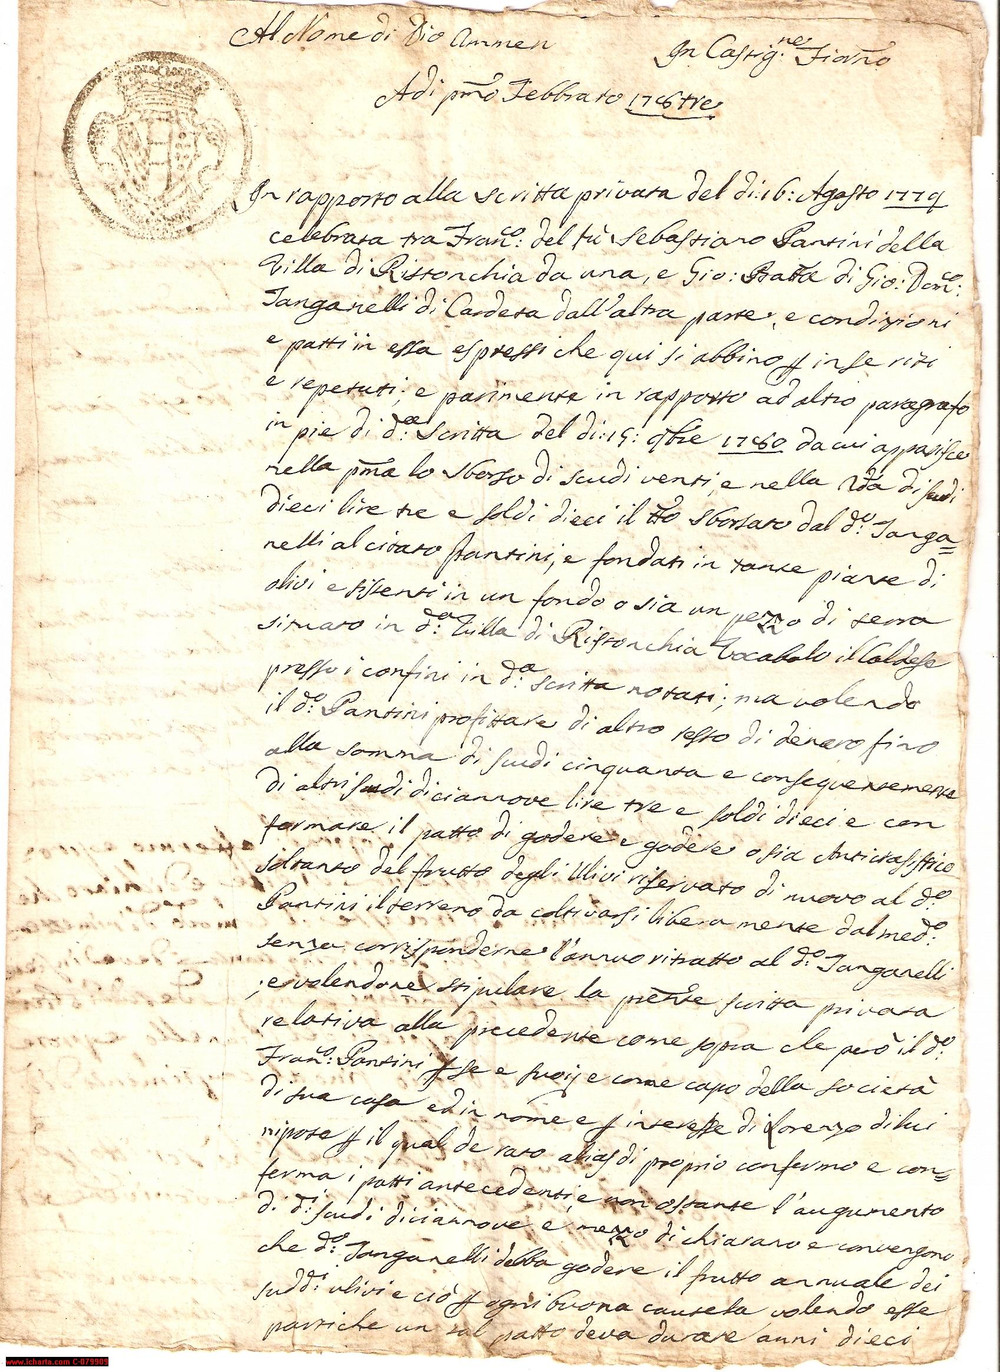 Al Nome di Dio Ammen
In Castig.ne Fior.no
Adi p.mo Febbraro 178tre
In rapporto alla scritta privata del di: 16: Agosto 1779
celebrata tra Fran.co: del fù Sebastiano Pantini della
Villa di Ristonchia da una, e Gio: Batta di Gio: Dom.co:
Tanganelli di Cardeta dall'altra parte, e condizioni
e patti in essa espressi che qui si abbino p inseriti
e repetuti; e parimente in rapporto ad altro paragrafo
in pie di d.a Scritta del di: 15: 9bre 1780 da cui apparisce
nella p.ma lo sborso di scudi venti, e nella 2da di scudi
dieci lire tre e soldi dieci il tto sborsato dal d.o Tanga=
nelli al citato Pantini, e fondati in tante piante di
olivi esistenti in un fondo o sia un pezzo di terra
situato in d.a Villa di Ristonchia Vocabolo il Caldese
presso i confini in d.a scritta notati; ma volendo
il d.o Pantini profittare di altro resto di denaro fino
alla somma di scudi cinquanta e conseguentemente
di altri scudi diciannove lire tre e soldi dieci e con
fermare il patto di godere e godere o sia Anticrasistico
soltanto del frutto degli Ulivi riservato di nuovo al d.o
Pantini il terreno da coltivarsi liberamente dal med.o:
senza corrisponderne l'annuo ritratto al d.o Tanganelli
; e volendone stipulare la presente scritta privata
relativa alla precedente come sopra che però il d.o
Fran.co: Pantini p se e suoi, e come capo della società
di sua casa ed in nome e p interesse di Lorenzo di lui
nipote p il qual de rato alias di proprio confermo e con=
ferma i patti antecedenti, e non ostante l'augumento
di d.i scudi diciannove e mezzo dichiarano e convengono
che d.o Tanganelli debba godere il frutto annuale dei
sudd.i ulivi e ciò p ogni buona causela volendo esse
parti che un tal patto deva durare anni dieci
www.icharta.com C-079909